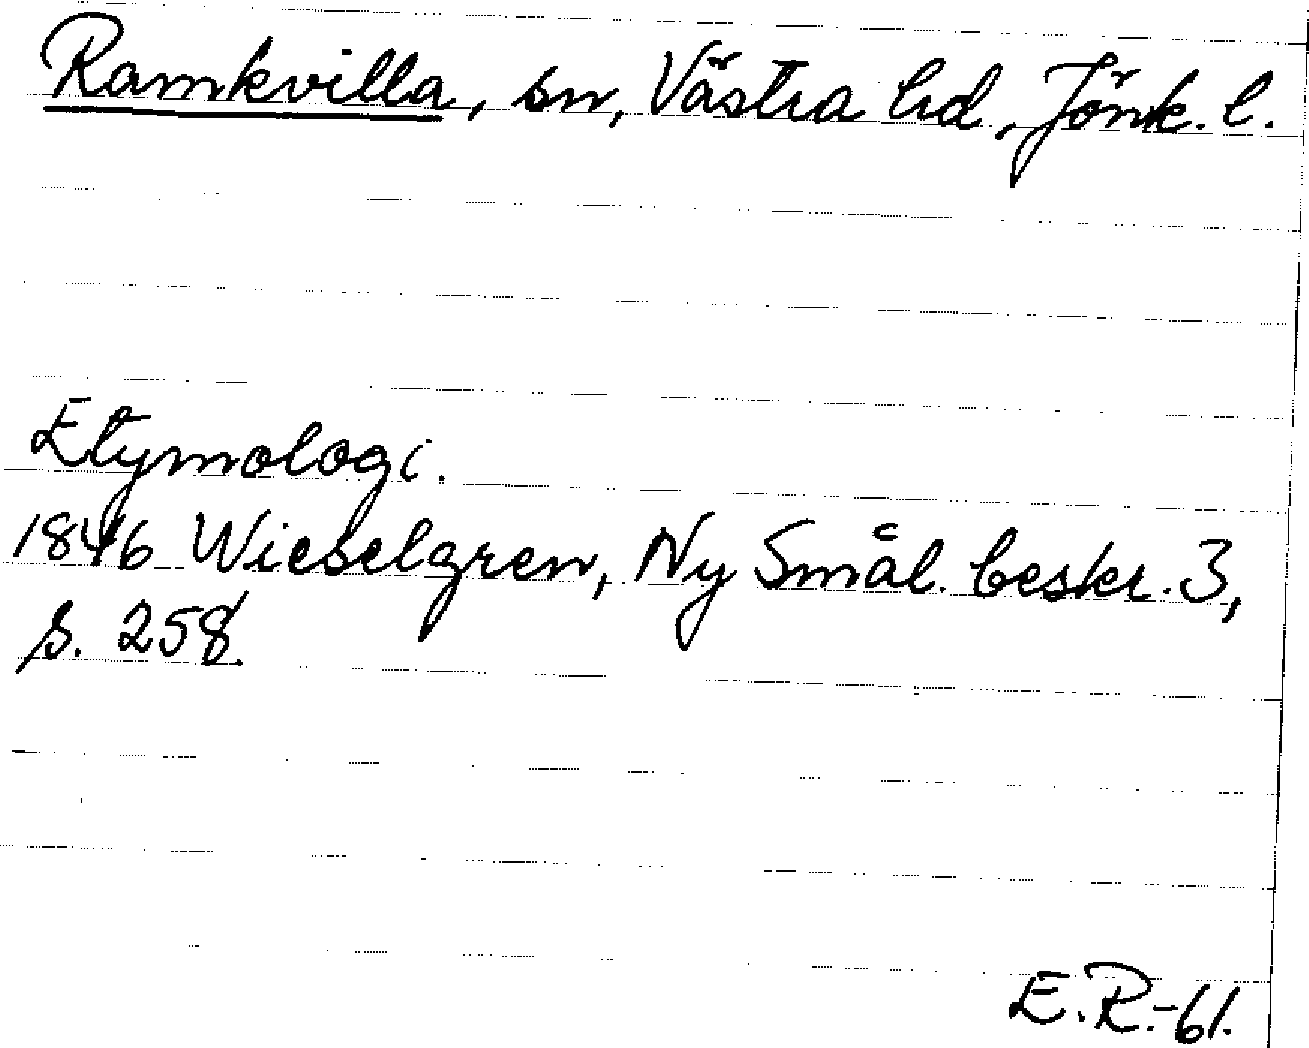 Ramkvilla, sn, Västra hd, Jönk. l.
Etymologi.
1846 Wieselgren, Ny Smål. beskr. 3,
s. 258.
E.R.-61.